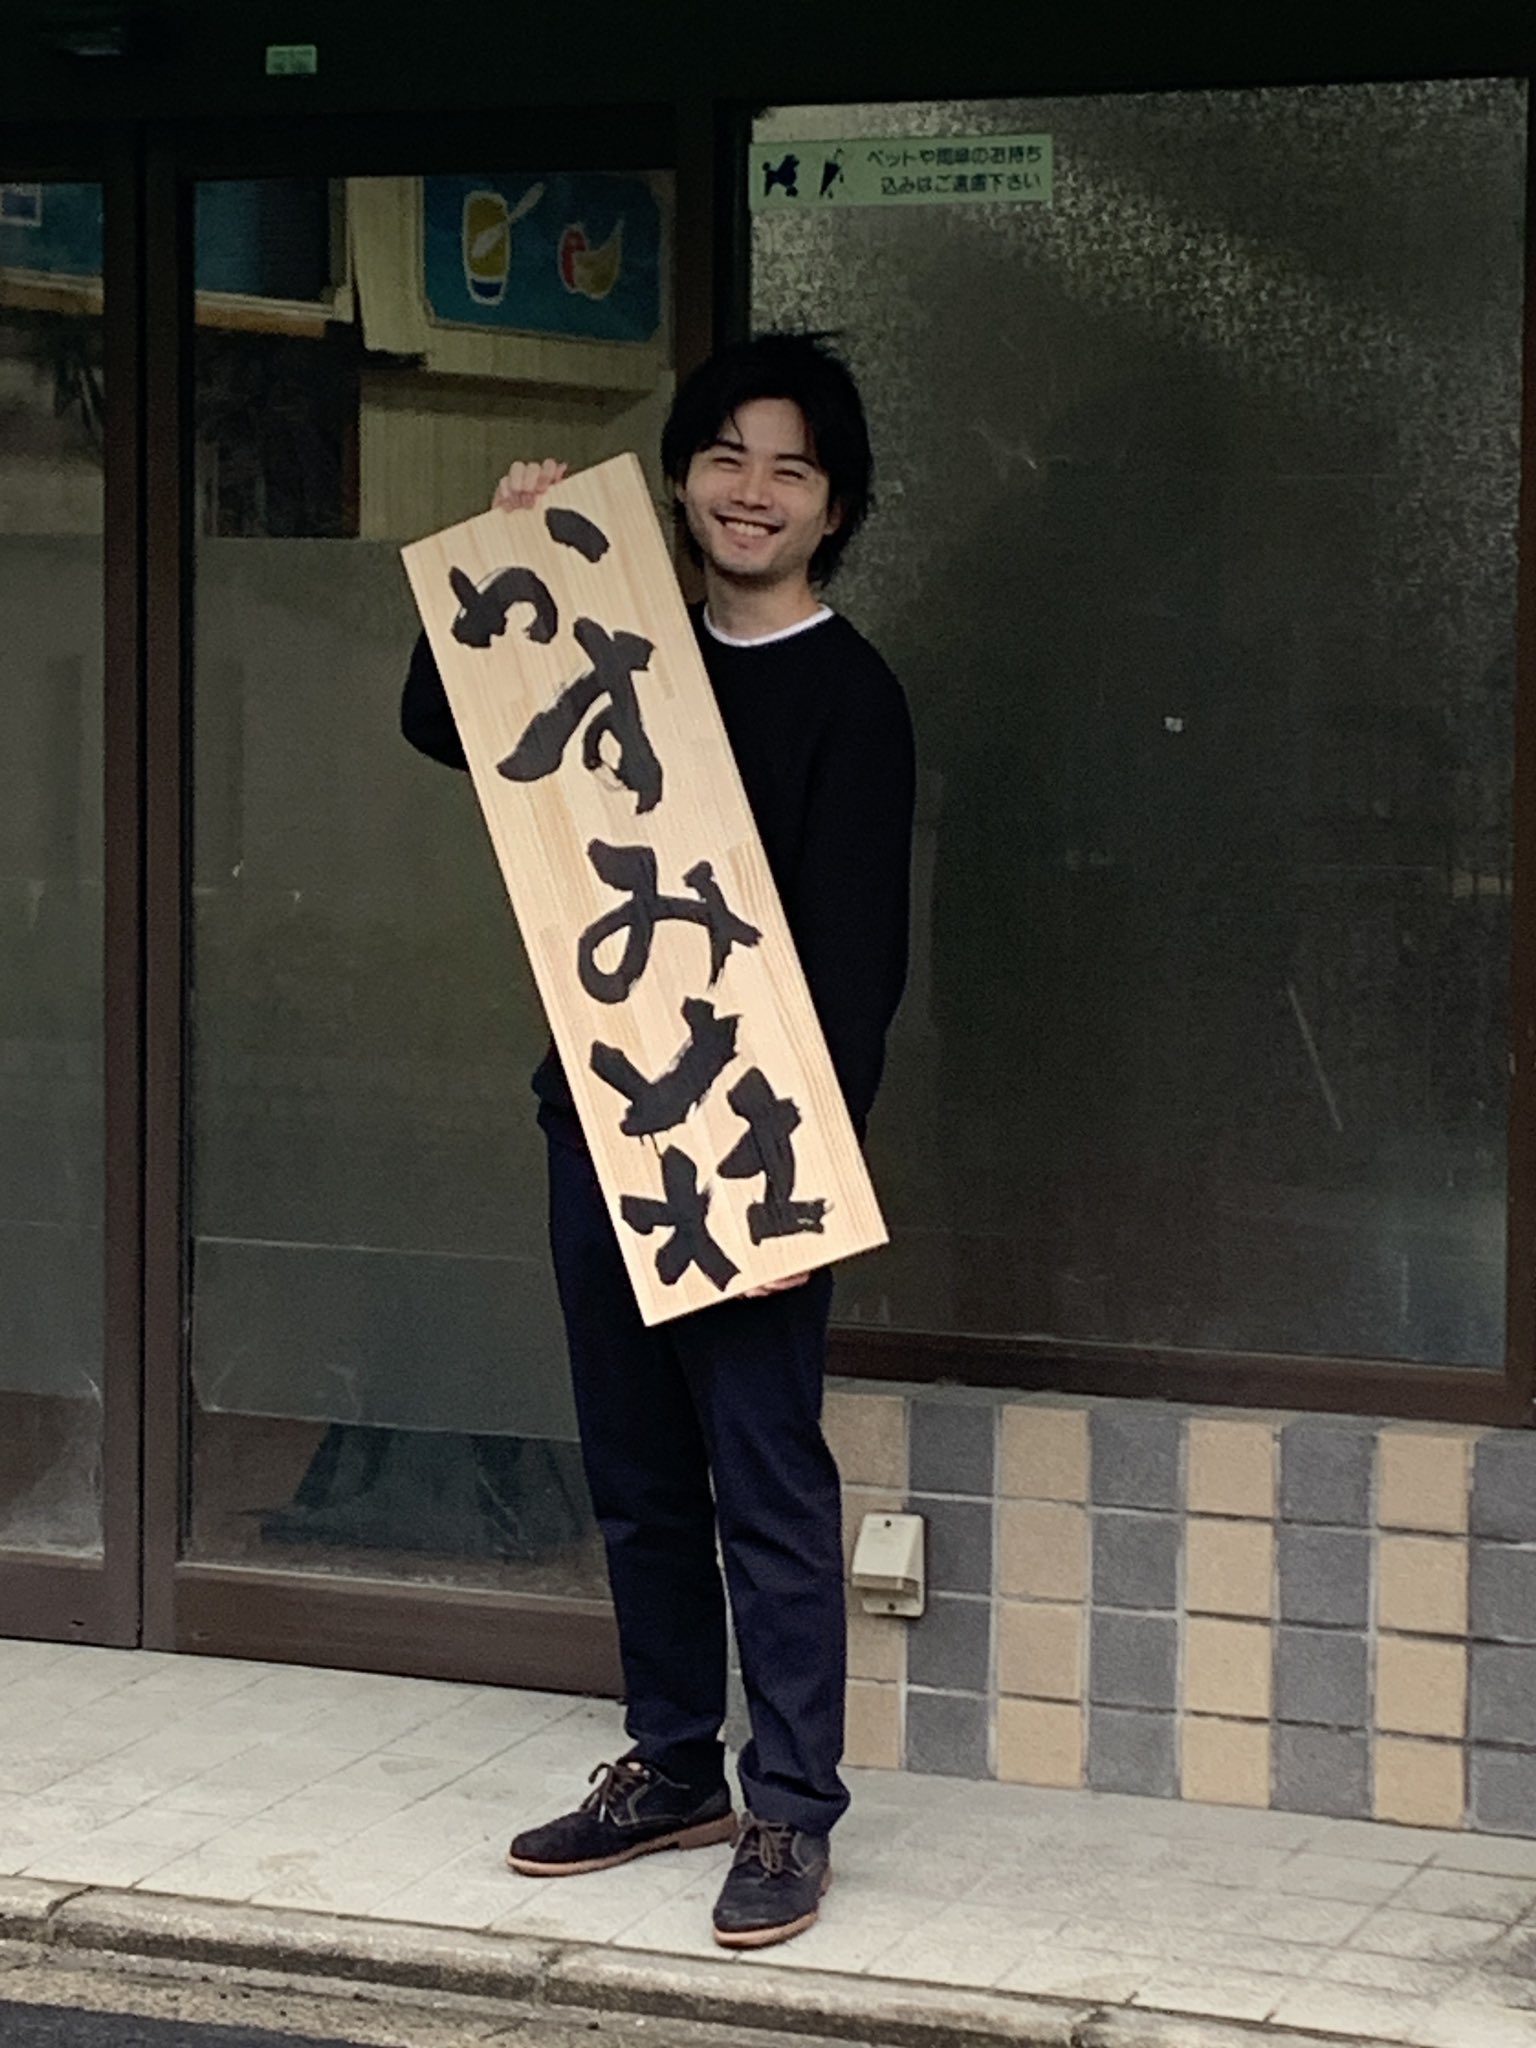 ペットや雨傘のお持ち
込みはご遠慮下さい
かすみ荘